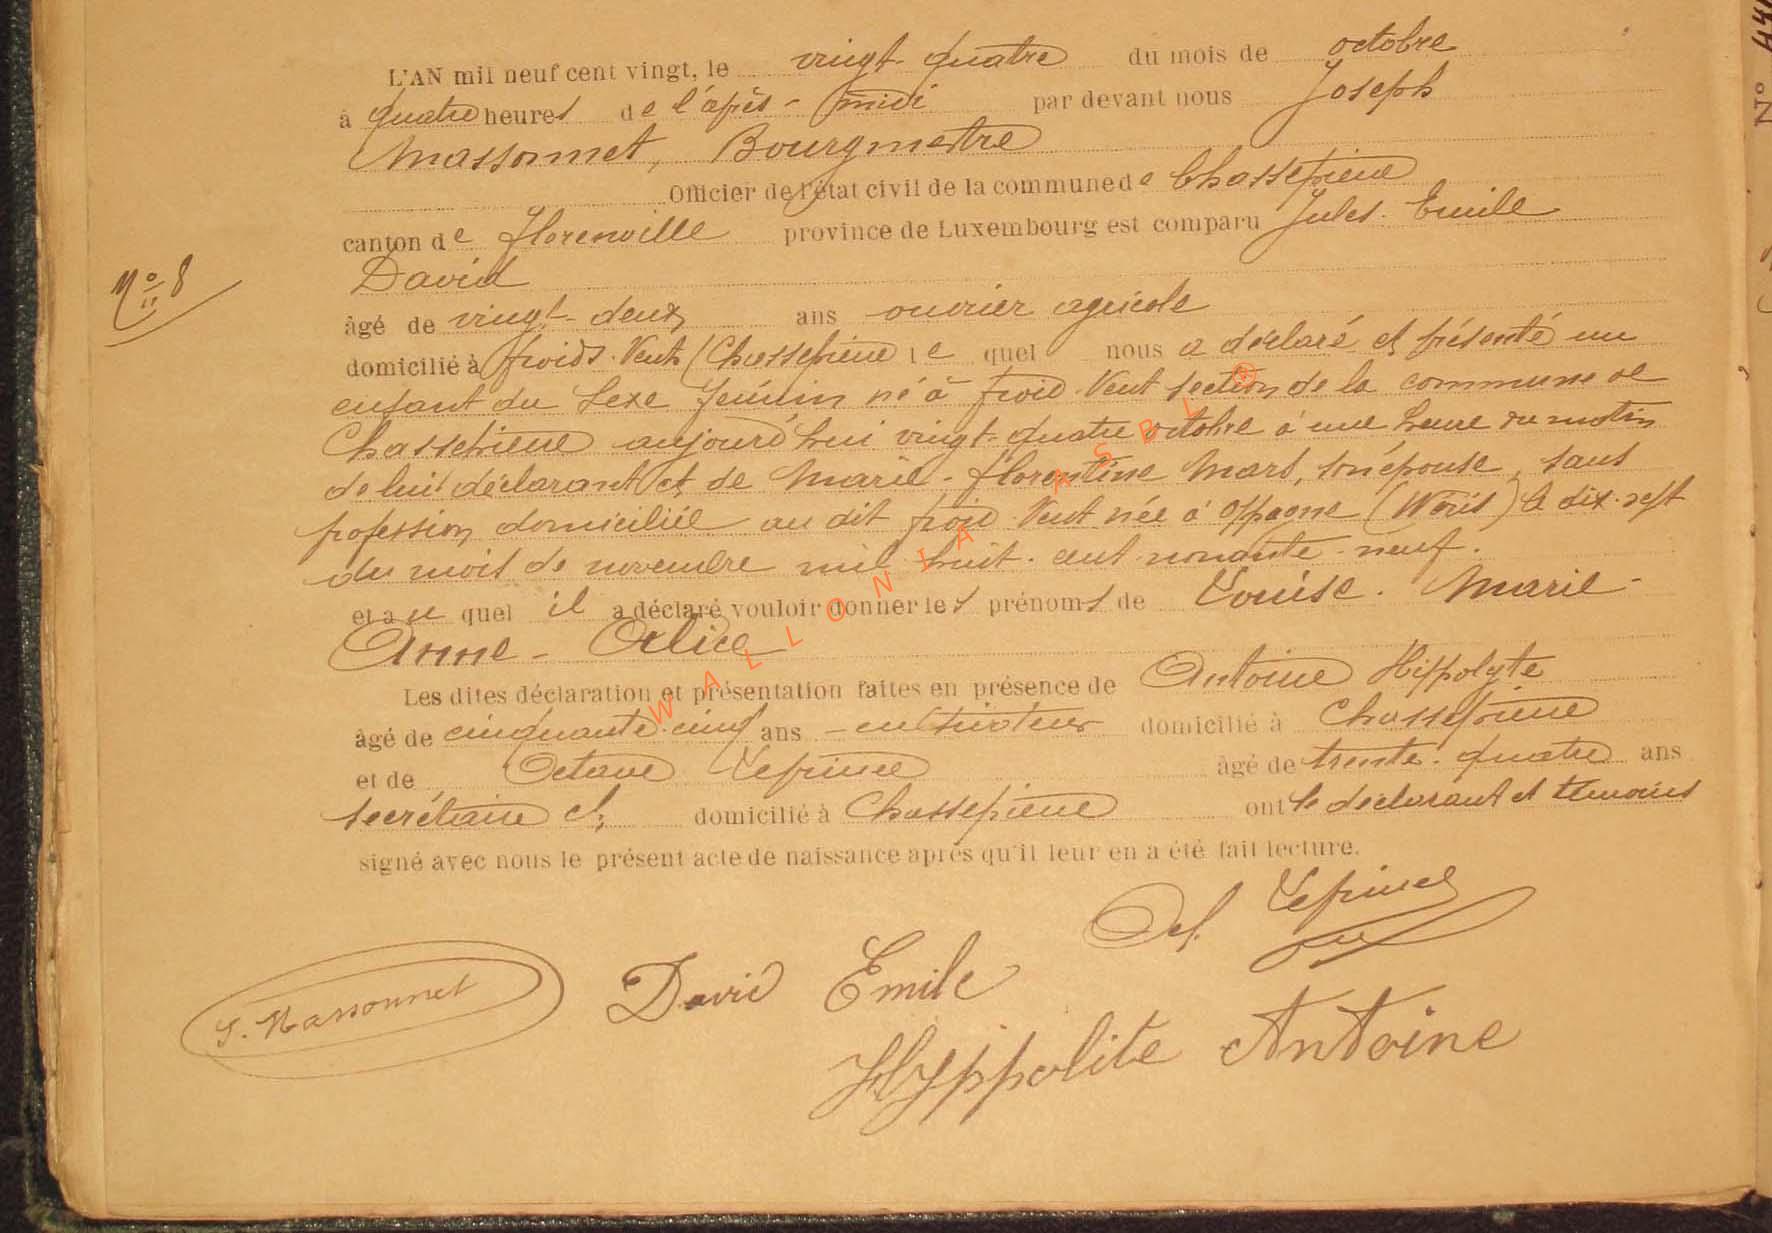 L'AN mil neuf cent vingt, le vingt-quatre du mois de octobre
à quatre heures de l'après-midi par devant nous Joseph
Massonnet, Bourgmestre
Officier de l'état civil de la commune de Chassepierre
canton de Florenville province de Luxembourg est comparu Jules-Emile
David
N° 8
âgé de vingt-deux ans ouvrier agricole
domicilié à froids-Vents (Chassepierre le quel nous a déclaré et présenté un
enfant du sexe féminin né à froid-Vent section de la commune de
Chassepierre aujourd'hui vingt-quatre octobre à une heure du matin
de lui déclarant et de Marie-florentine Mars, son épouse, sans
profession domiciliée au dit froid-Vent née à Oppagne (Wéris) le dix-sept
du mois de novembre mil huit-cent-nonante-neuf.
et au quel il a déclaré vouloir donner les prénoms de Louise-Marie-
Anne-Alice
Les dites déclaration et présentation faites en présence de Antoine Hippolyte
âgé de cinquante-cinq ans - cultivateur domicilié à Chassepierre
et de Octave Lefrince âgé de trente-quatre ans
secrétaire cl; domicilié à Chassepierre ont le déclarant et témoins
signé avec nous le présent acte de naissance après qu'il leur en a été fait lecture.
J. Massonnet David Emile Oct. Lefrince
Hyppolite Antoine
WALLONIA ASBL ®
N°